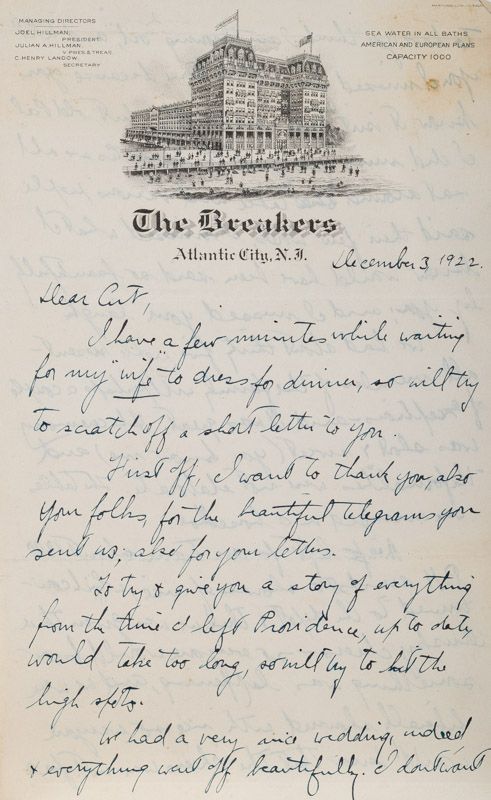 MANAGING DIRECTORS
JOEL HILLMAN,
PRESIDENT
JULIAN A. HILLMAN,
V. PRES & TREAS.
C. HENRY LANDOW,
SECRETARY
SEA WATER IN ALL BATHS
AMERICAN AND EUROPEAN PLANS
CAPACITY 1000
The Breakers
Atlantic City, N.J.
December 3, 1922.
Dear Art,
I have a few minutes while waiting
for my "wife" to dress for dinner, so will try
to scratch off a short letter to you.
First off, I want to thank you, also
your folks, for the beautiful telegrams you
sent us; also for your letters.
To try & give you a story of everything
from the time I left Providence, up to date
would take too long, so will try to hit the
high spots.
We had a very nice wedding, indeed
& everything went off beautifully. I don't want